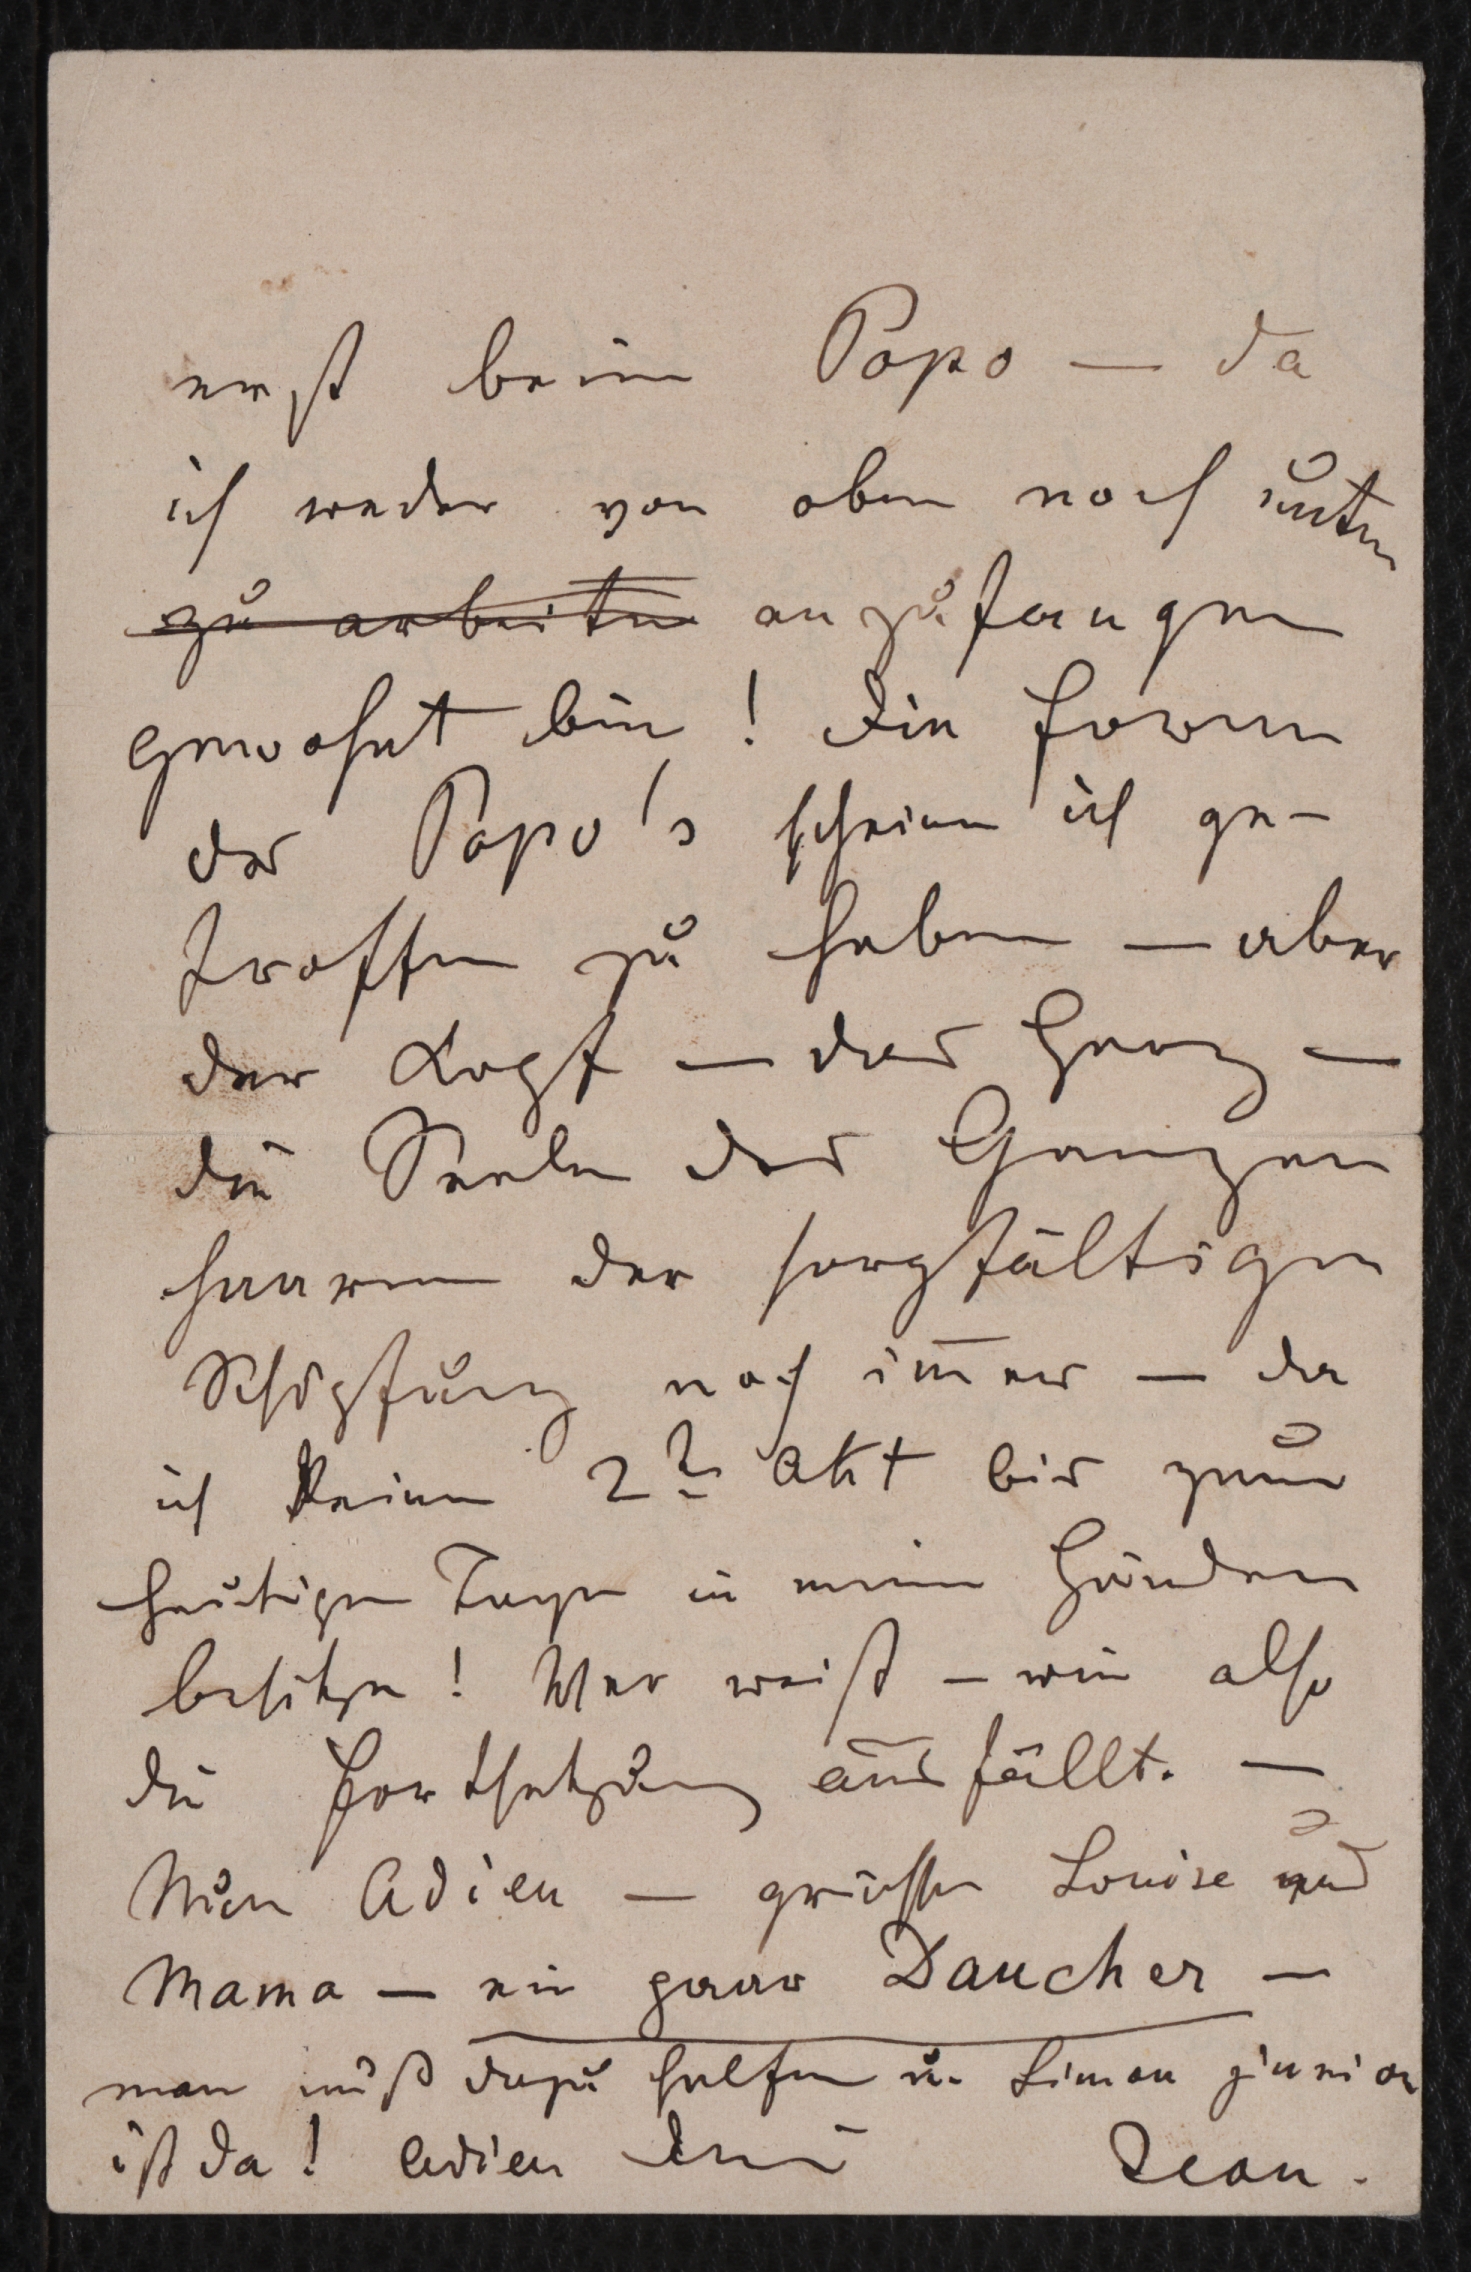 erst beim Popo — da
ich weder von oben noch unten
zu arbeiten anzufangen
gewohnt bin! Die Form
des Popo's scheine ich ge-
troffen zu haben — aber
der Kopf — das Herz —
die Seele des Ganzen
harren der sorgfältigen
Schöpfung noch immer — da
ich keinen 2ten Akt bis zum
heutigen Tage in meinen Händen
besitze! Wer weiß — wie also
die Fortsetzung ausfällt. —
Nun Adieu — grüsse Louise und
Mama — ein paar Daucher —
man muß dazu helfen u. Simon junior
ist da! Adieu Dein Jean.